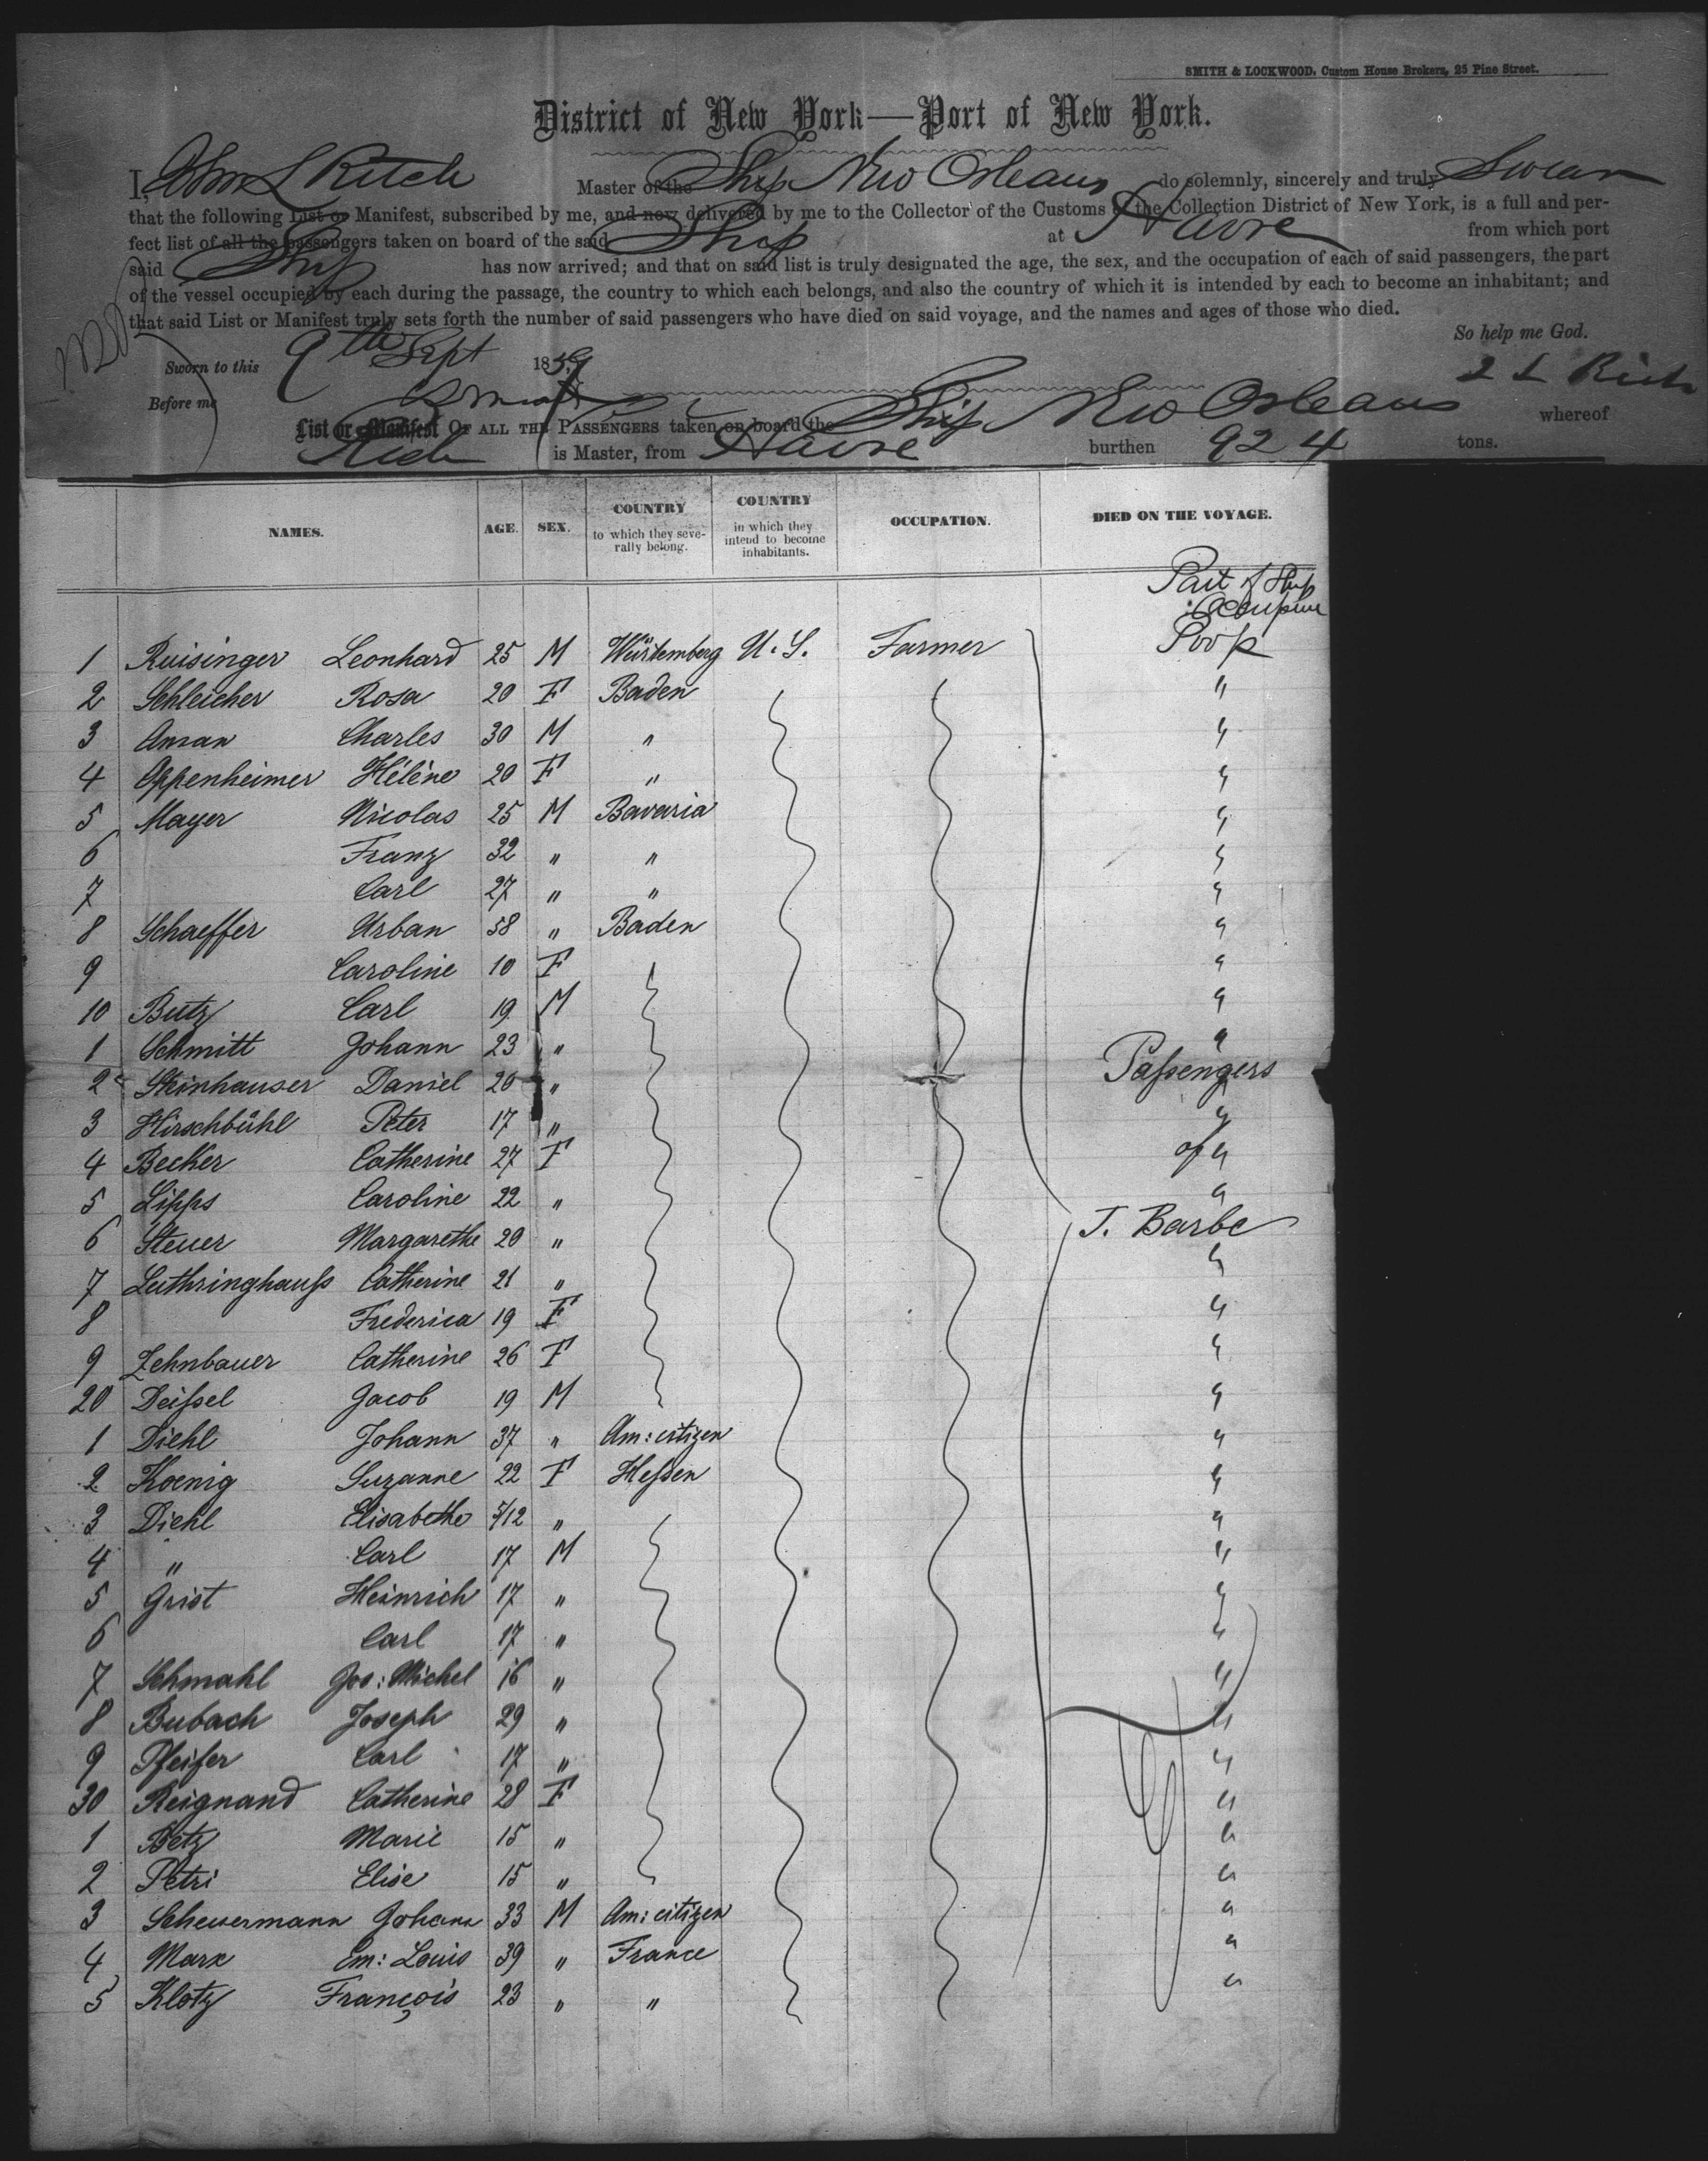 SMITH & LOCKWOOD, Custom House Brokers, 25 Pine Street.
District of New York—Port of New York.
I, John L Ritch Master of the Ship New Orleans do solemnly, sincerely and truly Swear
that the following List or Manifest, subscribed by me, and now delivered by me to the Collector of the Customs of the Collection District of New York, is a full and per-
fect list of all the passengers taken on board of the said Ship at Havre from which port
said Ship has now arrived; and that on said list is truly designated the age, the sex, and the occupation of each of said passengers, the part
of the vessel occupied by each during the passage, the country to which each belongs, and also the country of which it is intended by each to become an inhabitant; and
that said List or Manifest truly sets forth the number of said passengers who have died on said voyage, and the names and ages of those who died.
So help me God.
Sworn to this 9th Sept 1859
Before me
List or Manifest OF ALL THE PASSENGERS taken on board the Ship New Orleans whereof
is Master, from Havre burthen 924 tons.
NAMES. AGE. SEX. COUNTRY to which they seve-rally belong. COUNTRY in which they intend to become inhabitants. OCCUPATION. DIED ON THE VOYAGE.
Part of Ship
1 Ruisinger Leonhard 25 M Würtemberg U.S. Farmer Poop
2 Schleicher Rosa 20 F Baden "
3 Aman Charles 30 M " "
4 Oppenheimer Hélène 20 F " "
5 Mayer Nicolas 25 M Bavaria "
6 Franz 32 " " "
7 Carl 27 " " "
8 Schaeffer Urban 58 " Baden "
9 Caroline 10 F "
10 Butz Carl 19 M "
1 Schmitt Johann 23 " "
2 Steinhauser Daniel 20 " Passengers
3 Hirschbühl Peter 17 " "
4 Becker Catherine 27 F of "
5 Lipps Caroline 22 " "
6 Steuer Margarethe 20 " J. Barbe
7 Luthringhauss Catherine 21 " "
8 Frederica 19 F "
9 Zehnbauer Catherine 26 F "
20 Deissel Jacob 19 M "
1 Diehl Johann 37 " Am: citizen "
2 Koenig Suzanne 22 F Hessen "
3 Diehl Elisabethe 5/12 " "
4 " Carl 17 M "
5 Grist Heinrich 17 " "
6 Carl 17 " "
7 Schmahl Jos: Michel 16 " "
8 Bubach Joseph 29 " "
9 Pfeifer Carl 17 " "
30 Reignand Catherine 28 F "
1 Betz Marie 15 " "
2 Petri Elise 15 " "
3 Scheuermann Johann 33 M Am: citizen "
4 Marx Em: Louis 39 " France "
5 Klotz François 23 " " "